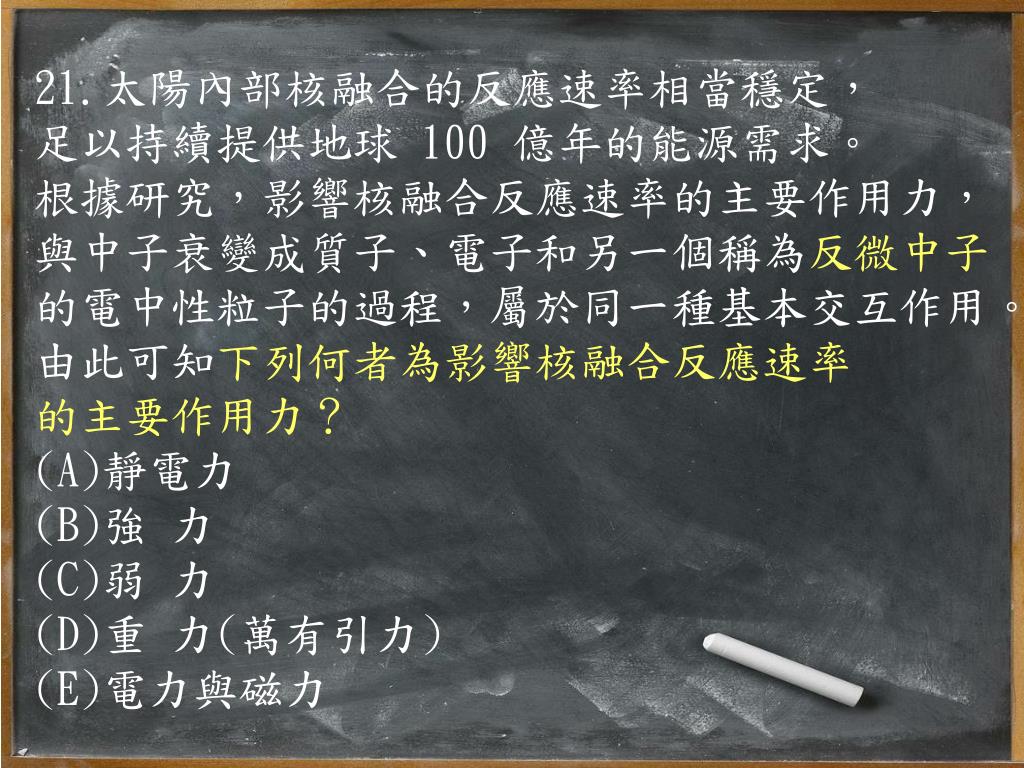 21.太陽內部核融合的反應速率相當穩定，
足以持續提供地球 100 億年的能源需求。
根據研究，影響核融合反應速率的主要作用力，
與中子衰變成質子、電子和另一個稱為反微中子
的電中性粒子的過程，屬於同一種基本交互作用。
由此可知下列何者為影響核融合反應速率
的主要作用力？
(A)靜電力
(B)強 力
(C)弱 力
(D)重 力(萬有引力)
(E)電力與磁力